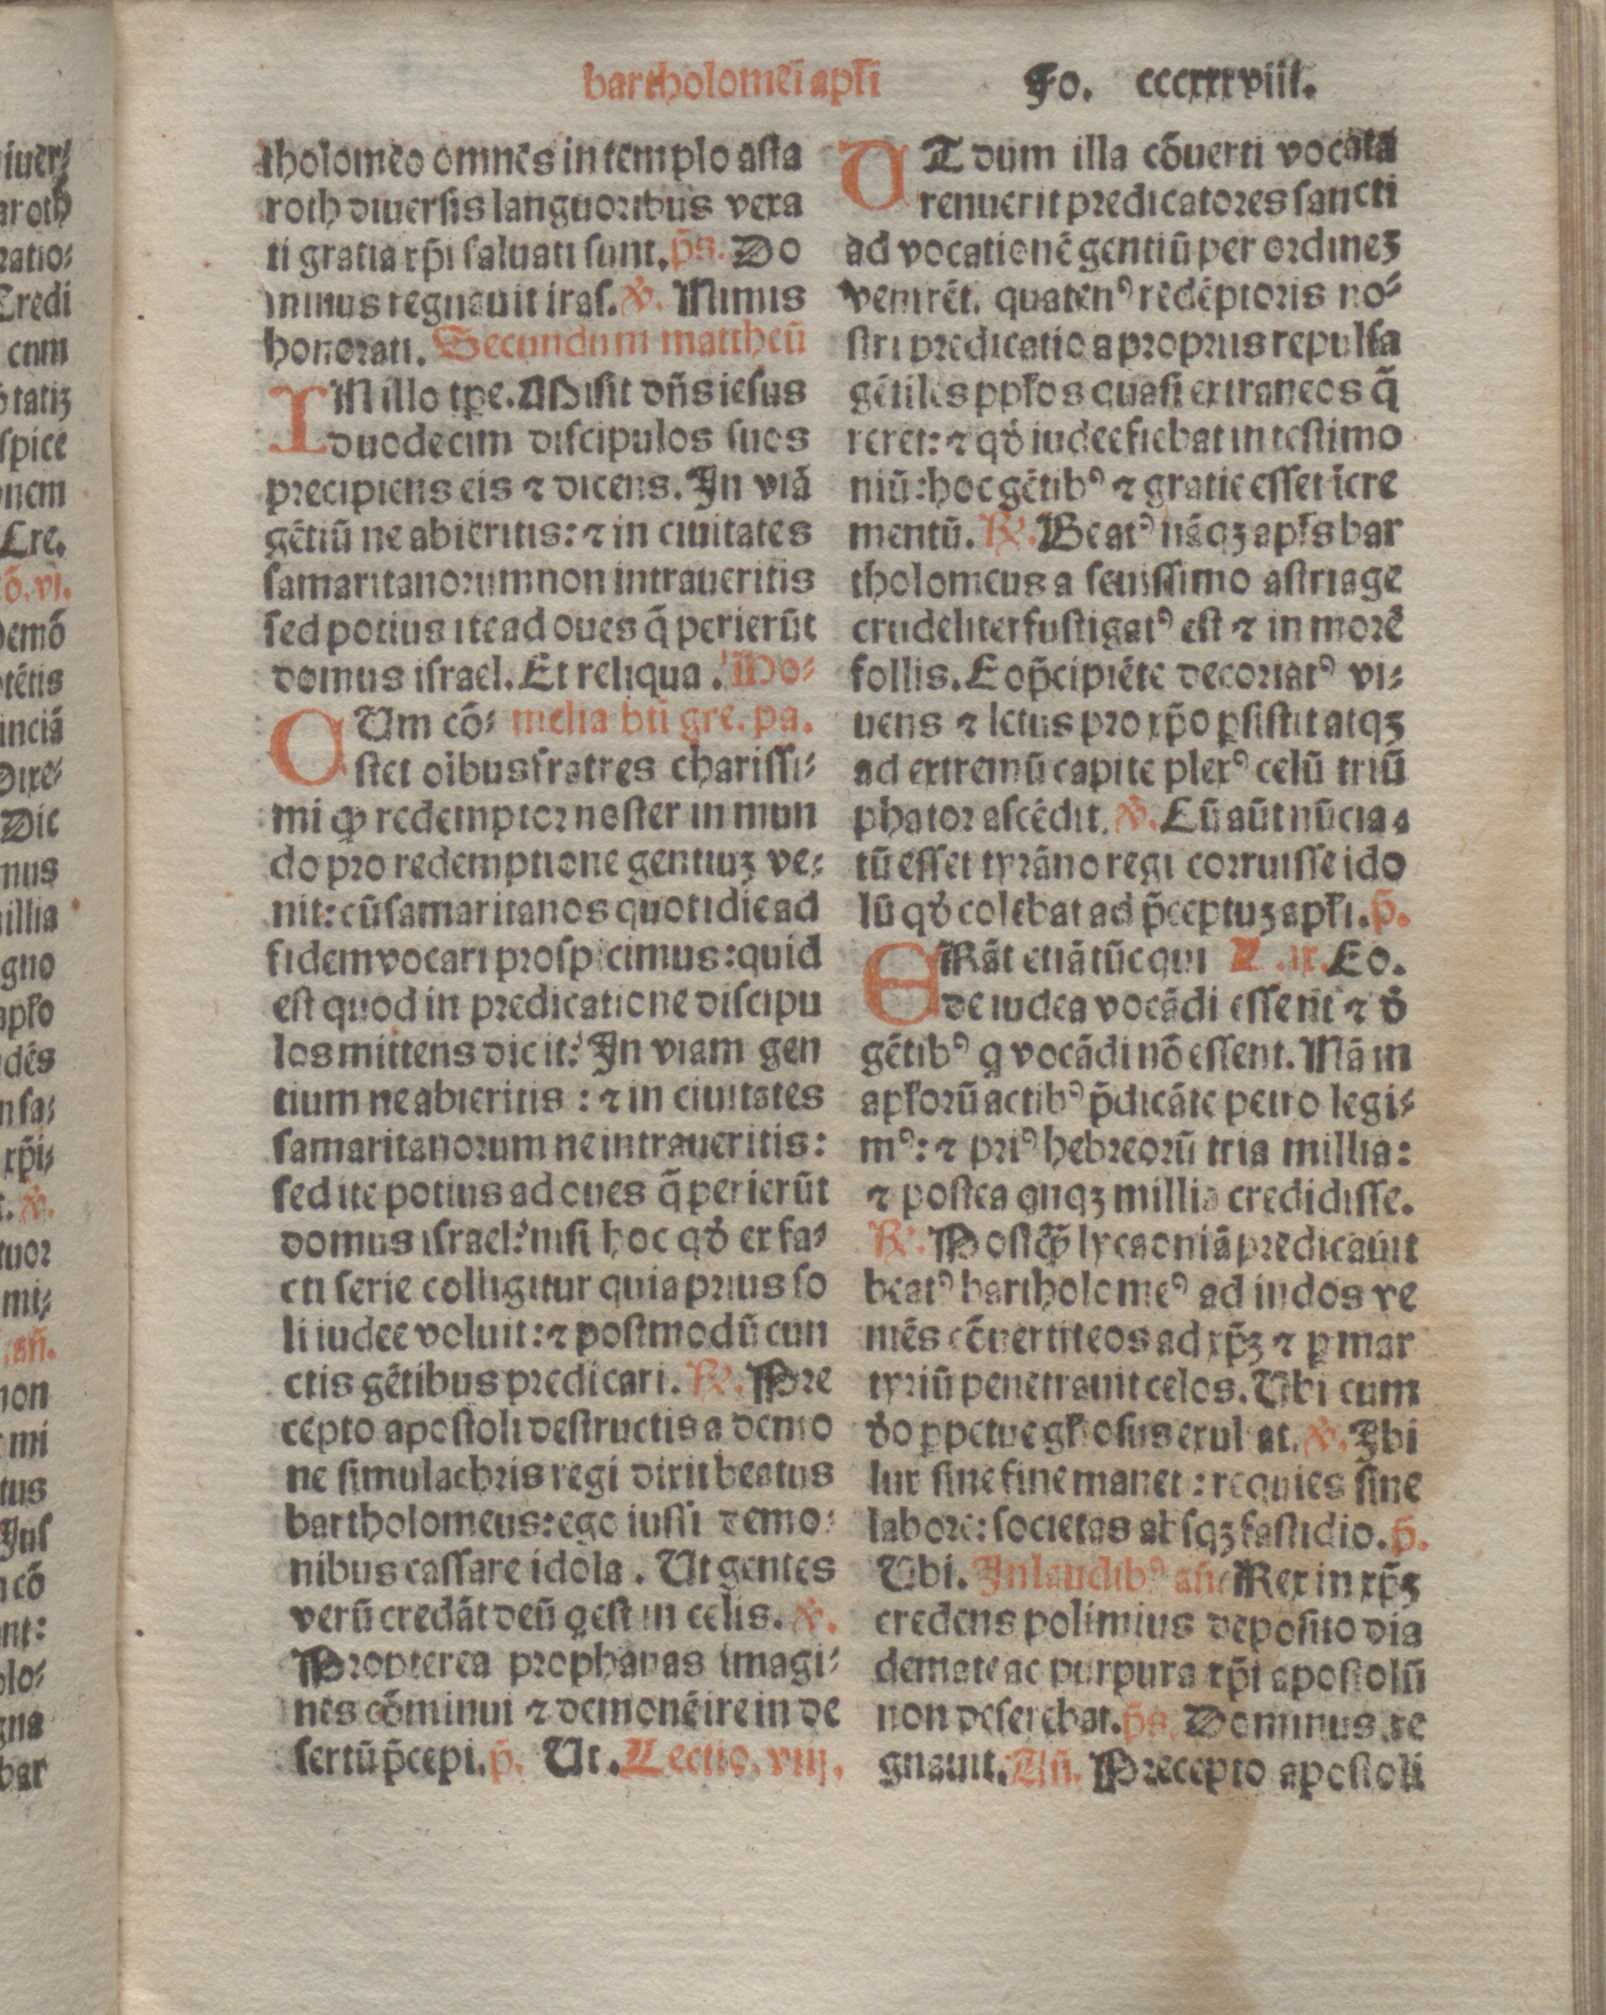 bartholomei apłi Fo. cccxxxviii.
tholomeo omnes in templo asta
roth diuersis languoribus vexa
ti gratia xp̄i saluati sunt. p̄s. Do
minus regnauit iras. ℣. Nimis
honorati. Secundum mattheū
IN illo tꝑe. Misit dn̄s iesus
duodecim discipulos suos
precipiens eis ⁊ dicens. In viā
gētiū ne abieritis: ⁊ in ciuitates
samaritanorum non intraueritis
sed potius ite ad oues q̄ perierūt
domus israel. Et reliqua. Mo⸗
CUm cō⸗ melia bti gre. pa.
stet oibus fratres charissi⸗
mi ꝙ redemptor noster in mun
do pro redemptione gentiuꝫ ve⸗
nit: cū samaritanos quotidie ad
fidem vocari prospicimus: quid
est quod in predicatione discipu
los mittens dicit: In viam gen
tium ne abieritis: ⁊ in ciuitates
samaritanorum ne intraueritis:
sed ite potius ad oues q̄ perierūt
domus israel: nisi hoc qđ ex fa⸗
cti serie colligitur quia prius so
li iudee voluit: ⁊ postmodū cun
ctis gētibus predicari. ℟. Pre
cepto apostoli destructis a demo
ne simulacbris regi dixit beatus
bartholomeus: ego iussi demo⸗
nibus cassare idola. Ut gentes
verū credāt deū q̇ est in celis. ℣.
Propterea prophanas imagi⸗
nes cōminui ⁊ demonē ire in de
sertū p̄cepi. p̄. Ut. Lectio. viij.
UT dum illa cōuerti vocata
renuerit predicatores sancti
ad vocationē gentiū per ordineꝫ
venirēt. quatenꝰ redēptoris no⸗
stri predicatio a propriis repulsa
gētiles ppłos quasi extraneos q̄
reret: ⁊ qđ iudee fiebat in testimo
niū: hoc gētibꝰ ⁊ gratie esset īcre
mentū. ℟. Beatꝰ nāqꝫ apłs bar
tholomeus a seuissimo astriage
crudeliter fustigatꝰ est ⁊ in morē
follis. Eo p̄cipiēte decoriatꝰ vi⸗
uens ⁊ letus pro xp̄o ꝑsistit atqꝫ
ad extremū capite plexꝰ celū triū
phator ascēdit. ℣. Cū aūt nūcia⸗
tū esset tyrāno regi corruisse ido
lū qđ colebat ad p̄ceptuꝫ apłi. p̄.
ERāt etiā tūc qui L. ix. Eo.
de iudea vocādi essent ⁊ đ
gētibꝰ q̇ vocādi nō essent. Nā in
apłorū actibꝰ p̄dicāte petro legi⸗
mꝰ: ⁊ priꝰ hebreorū tria millia:
⁊ postea qnqꝫ millia credidisse.
℟. Postꝙ̄ lycaoniā predicauit
beatꝰ bartholomeꝰ ad indos ve
niēs cōuertit eos ad xp̄ꝫ ⁊ ꝑ mar
tyriū penetrauit celos. Ubi cum
đo ꝑpetue głiosus exultat. ℣. Ibi
lux sine fine manet: requies sine
labore: societas absqꝫ fastidio. p̄.
Ubi. In laudibꝰ an̄. Rex in xp̄ꝫ
credens polimius deposito dia
demate ac purpura xp̄i apostolū
non deserebat. p̄s. Dominus re
gnauit. An̄. Precepto apostoli